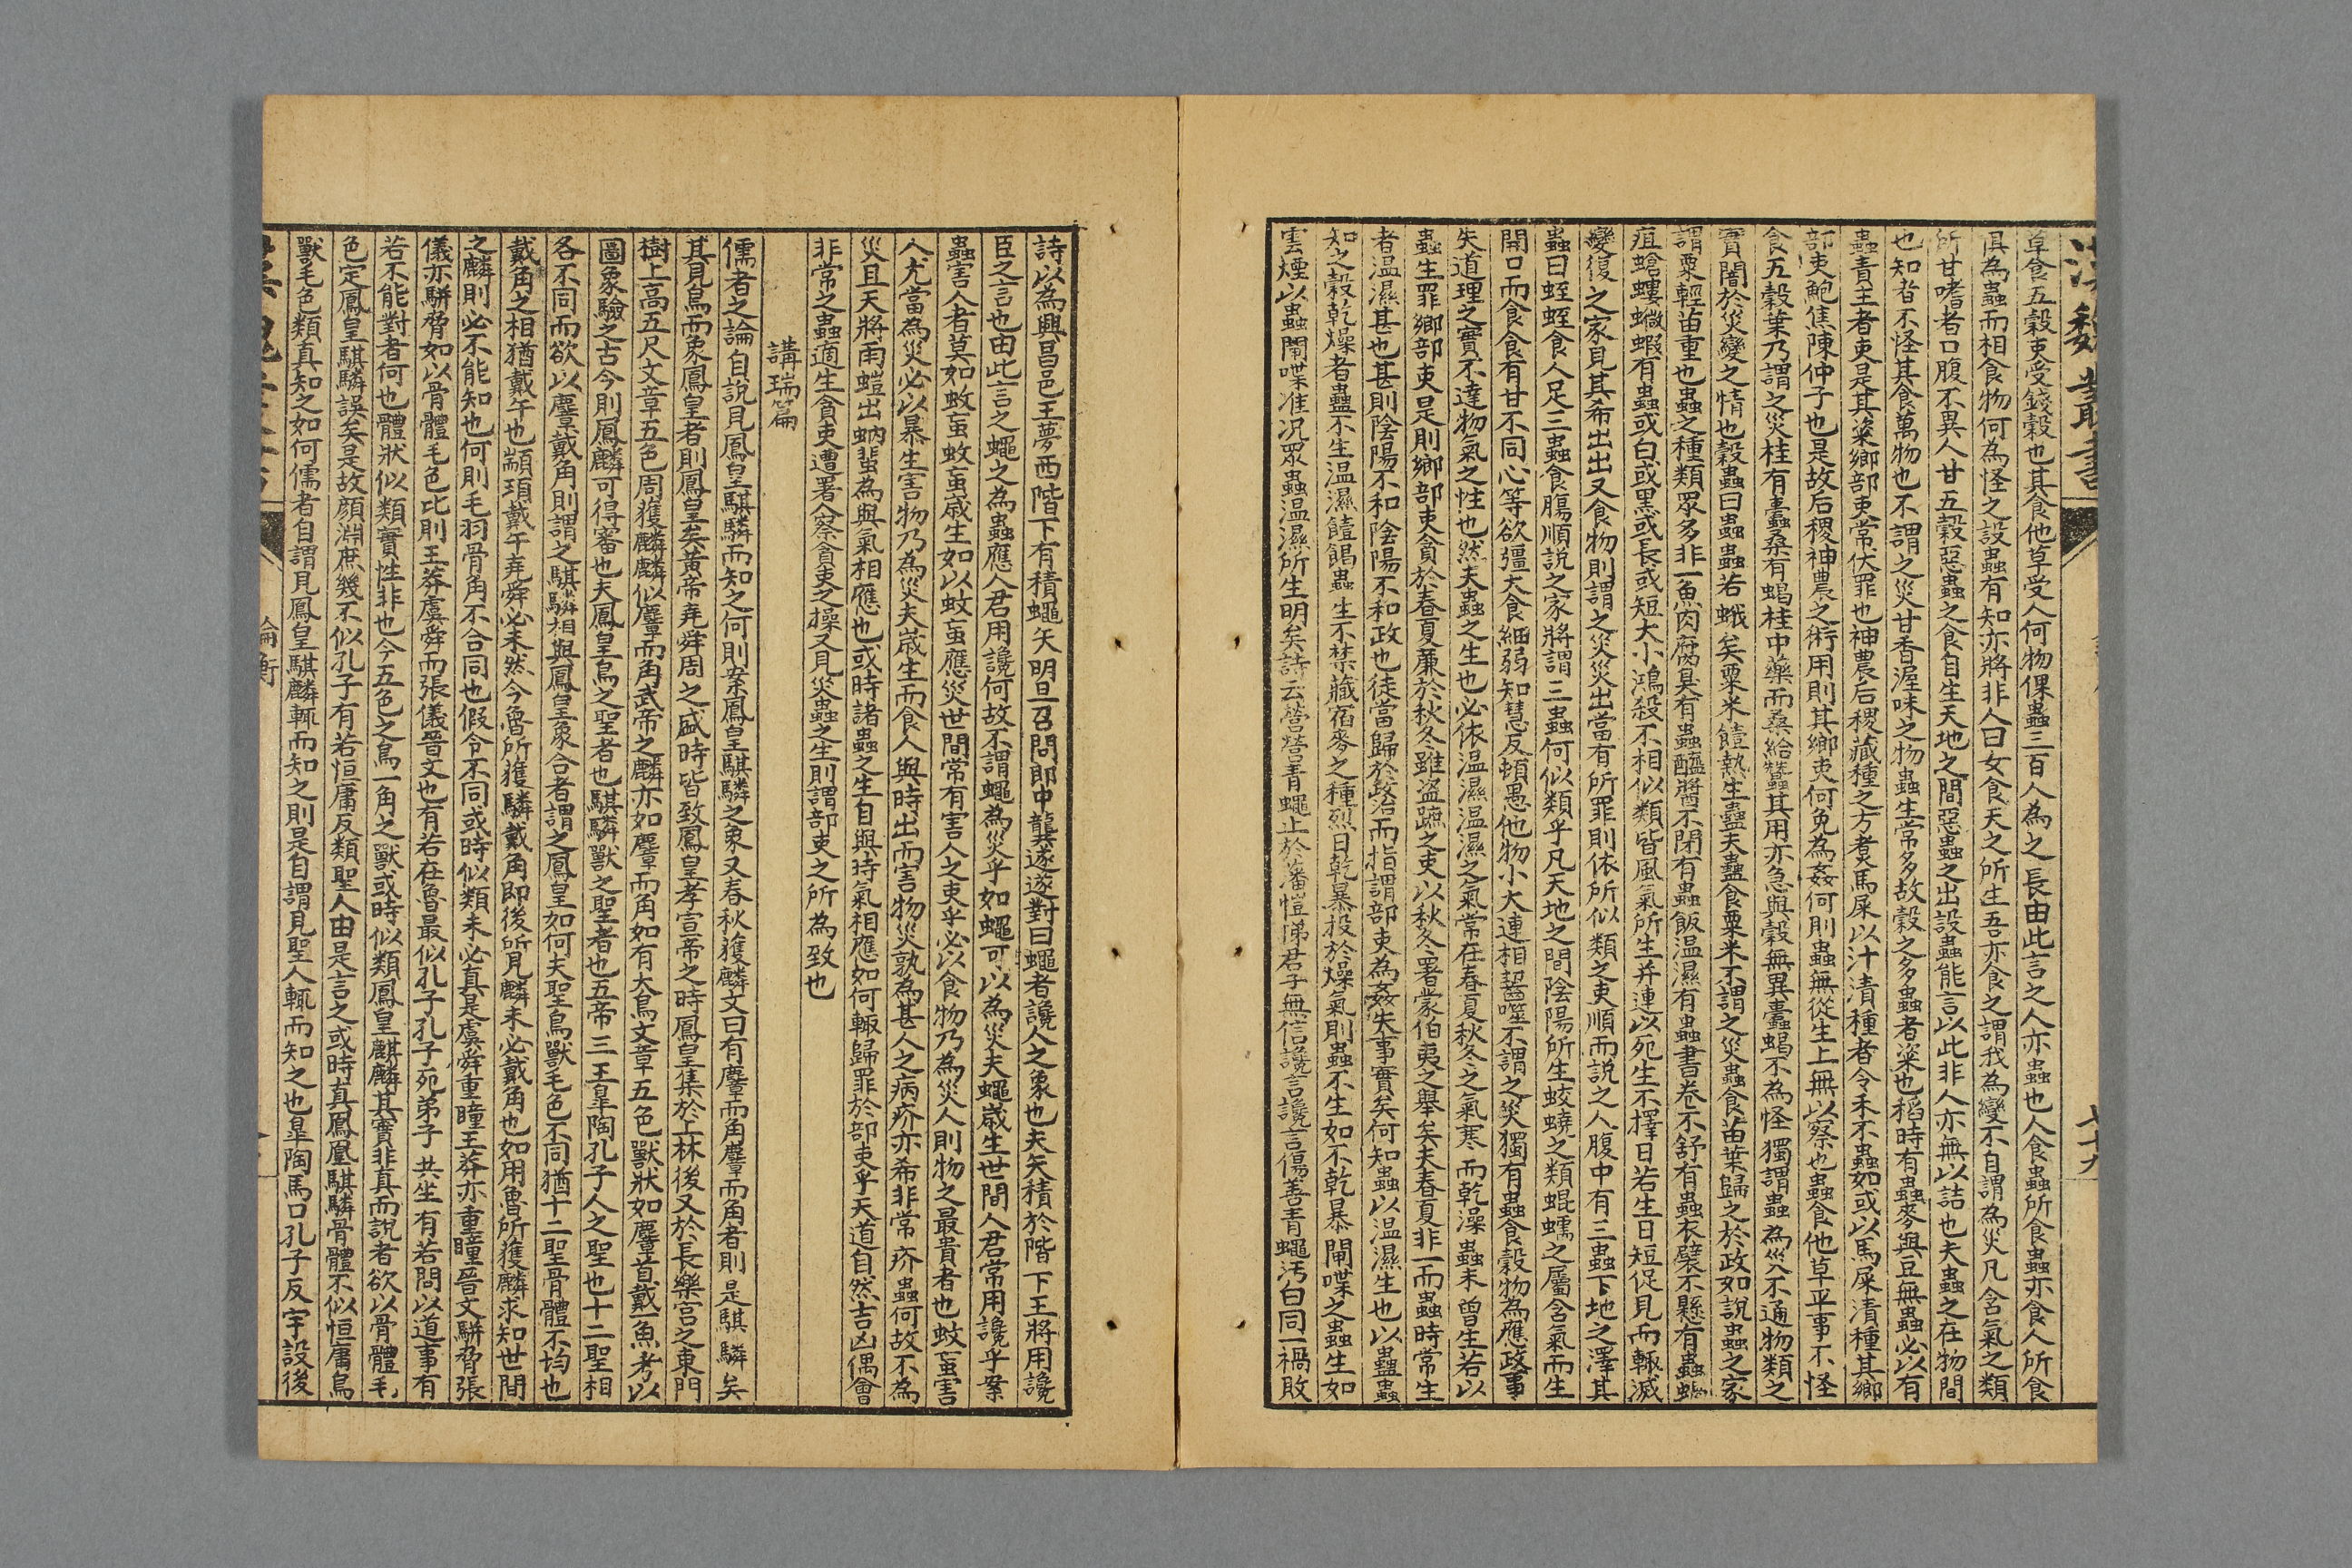 漢魏叢書
草食五穀吏受錢穀也其食他草受人何物倮蟲三百人為之長由此言之人亦蟲也人食蟲所食蟲亦食人所食
俱為蟲而相食物何為怪之設蟲有知亦將非人曰女食天之所生吾亦食之謂我為變不自謂為災凡含氣之類
所甘嗜者口腹不異人甘五穀惡蟲之食自生天地之間惡蟲之出設蟲能言以此非人亦無以詰也夫蟲之在物間
也知者不怪其食萬物也不謂之災甘香渥味之物蟲生常多故穀之多蟲者粢也稻時有蟲麥與豆無蟲必以有
蟲責主者吏是其粢鄉部吏常伏罪也神農后稷藏種之方煮馬屎以汁漬種者令禾不蟲如或以馬屎漬種其鄉
部吏鮑焦陳仲子也是故后稷神農之術用則其鄉吏何免為姦何則蟲無從生上無以察也蟲食他草平事不怪
食五穀葉乃謂之災桂有蠹桑有蝎桂中藥而桑給蠶其用亦急與穀無異蠹蝎不為怪獨謂蟲為災不通物類之
實闇於災變之情也穀蟲曰蠱蠱若蛾矣粟米饐熱生蠱夫蠱食粟米不謂之災蟲食苗葉歸之於政如說蟲之家
謂粟輕苗重也蟲之種類眾多非一魚肉腐臭有蟲醯醬不閉有蟲飯温濕有蟲書卷不舒有蟲衣襞不懸有蟲蝸
疽螥螻蝦有蟲或白或黑或長或短大小鴻殺不相似類皆風氣所生并連以死生不擇日若生日短促見而輒滅
變復之家見其希出出又食物則謂之災災出當有所罪則依所似類之吏順而說之人腹中有三蟲下地之澤其
蟲曰蛭蛭食人足三蟲食腸順說之家將謂三蟲何似類乎凡天地之間陰陽所生蛟蟯之類蜫蠕之屬含氣而生
開口而食食有甘不同心等欲彊大食細弱知慧反頓愚他物小大連相齧噬不謂之災獨有蟲食穀物為應政事
失道理之實不達物氣之性也然夫蟲之生也必依温濕温濕之氣常在春夏秋冬之氣寒而乾澡蟲未曾生若以
蟲生罪鄉部吏是則鄉部吏貪於春夏廉於秋冬雖盜蹠之吏以秋冬署蒙伯夷之舉矣夫春夏非一而蟲時常生
者温濕甚也甚則陰陽不和陰陽不和政也徒當歸於政治而指謂部吏為姦失事實矣何知蟲以温濕生也以蠱蟲
知之穀乾燥者蠱不生温濕饐餲蟲生不禁藏宿麥之種烈日乾暴投於燥氣則蟲不生如不乾暴閘喋之蟲生如
雲煙以蟲閘喋准况眾蟲温濕所生明矣詩云營營青蠅止於藩愷悌君子無信讒言讒言傷善青蠅汚白同一禍敗
詩以為興昌邑王夢西階下有積蠅矢明旦召問郎中龔遂遂對曰蠅者讒人之象也夫矢積於階下王將用讒
臣之言也由此言之蠅之為蟲應人君用讒何故不謂蠅為災乎如蠅可以為災夫蠅歲生世間人君常用讒乎案
蟲害人者莫如蚊䖟蚊䖟歲生如以蚊䖟應災世間常有害人之吏乎必以食物乃為災人則物之最貴者也蚊䖟害
人尤當為災必以暴生害物乃為災夫歲生而食人與時出而害物災孰為甚人之病疥亦希非常疥蟲何故不為
災且天將雨螘出蚋蜚為與氣相應也或時諸蟲之生自與時氣相應如何輒歸罪於部吏乎天道自然吉凶偶會
非常之蟲適生貪吏遭署人察貪吏之操又見災蟲之生則謂部吏之所為致也
講瑞篇
儒者之論自說見鳳皇騏驎而知之何則案鳳皇騏驎之象又春秋獲麟文曰有麞而角麞而角者則是騏驎矣
其見鳥而象鳳皇者則鳳皇矣黃帝堯舜周之盛時皆致鳳皇孝宣帝之時鳳皇集於上林後又於長樂宮之東門
樹上高五尺文章五色周獲麟麟似麞而角武帝之麟亦如麞而角如有大鳥文章五色獸狀如麞首戴一角考以
圖象驗之古今則鳳麟可得審也夫鳳皇鳥之聖者也騏驎獸之聖者也五帝三王皐陶孔子人之聖也十二聖相
各不同而欲以麞戴角則謂之騏驎相與鳳皇象合者謂之鳳皇如何夫聖鳥獸毛色不同猶十二聖骨體不均也
戴角之相猶戴午也顓頊戴午堯舜必未然今魯所獲驎戴角即後所見麟未必戴角也如用魯所獲麟求知世間
之麟則必不能知也何則毛羽骨角不合同也假令不同或時似類未必真是虞舜重瞳王莽亦重瞳晉文駢脅張
儀亦駢脅如以骨體毛色比則王莽虞舜而張儀晉文也有若在魯最似孔子孔子死弟子共坐有若問以道事有
若不能對者何也體狀似類實性非也今五色之鳥一角之獸或時似類鳳皇麒麟其實非真而說者欲以骨體毛
色定鳳皇騏驎誤矣是故顏淵庶幾不似孔子有若恒庸反類聖人由是言之或時真鳳凰騏驎骨體不似恒庸鳥
獸毛色類真知之如何儒者自謂見鳳皇騏麟輒而知之則是自謂見聖人輒而知之也皐陶馬口孔子反宇設後
論衡